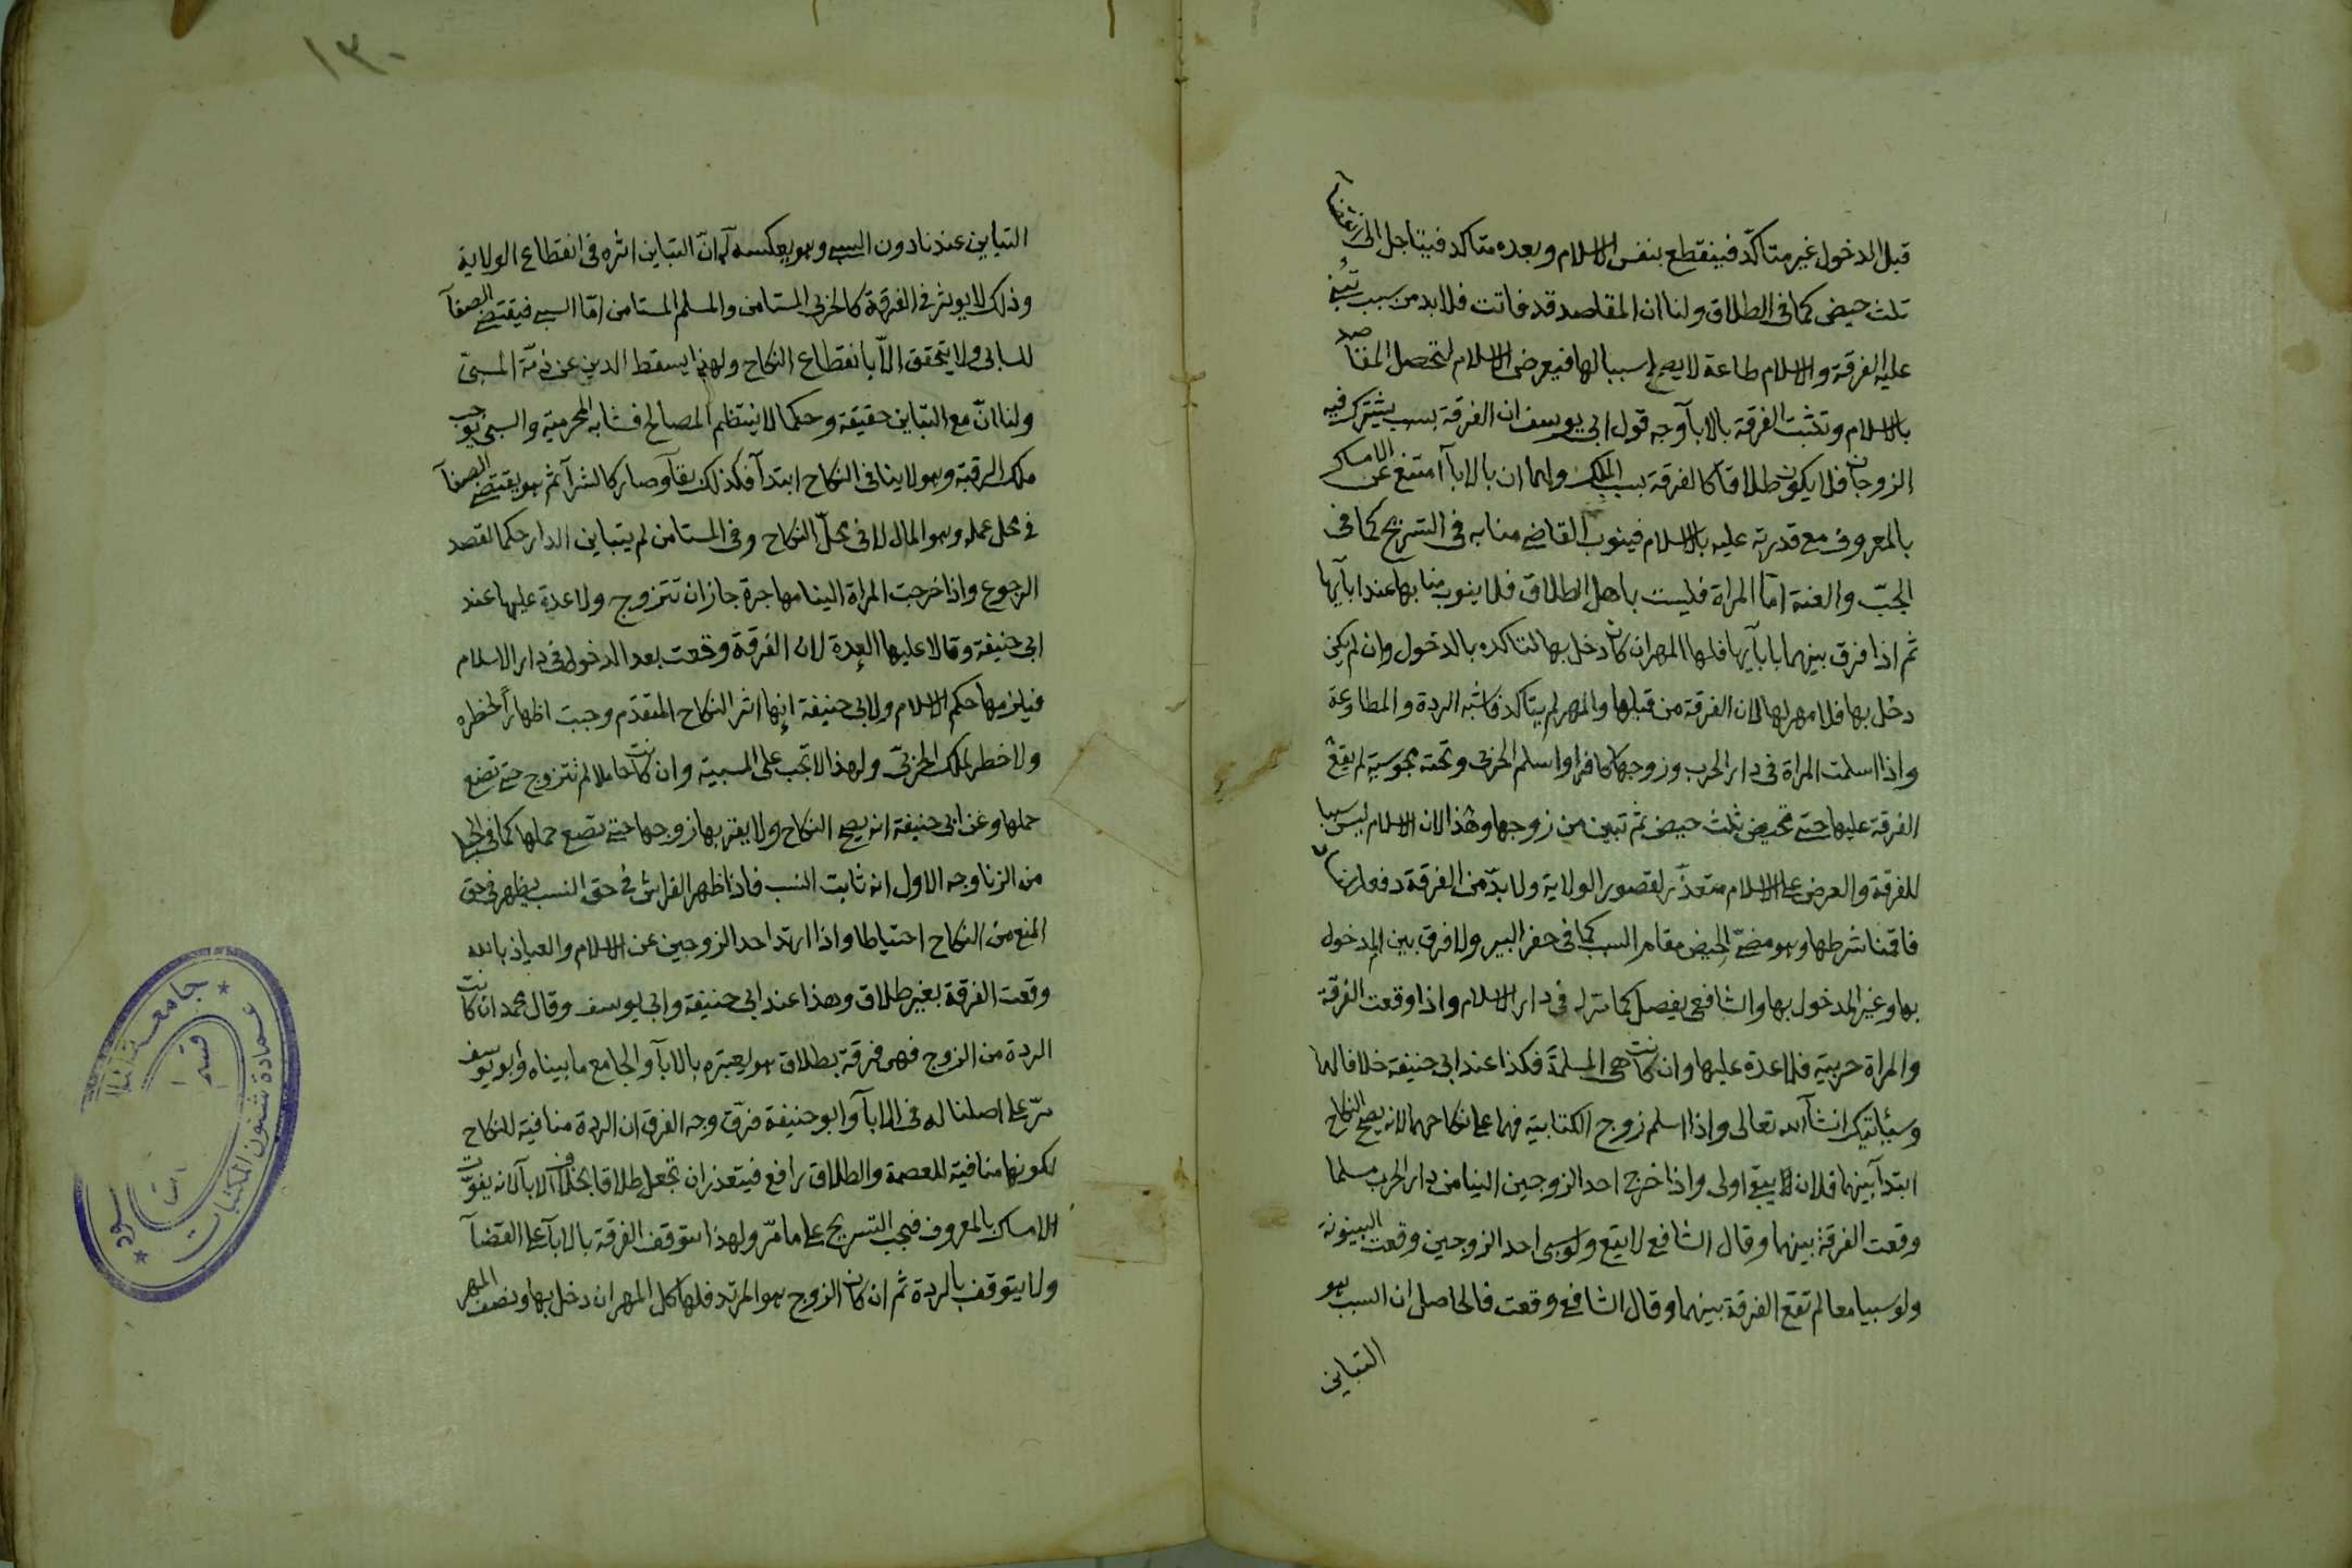 قبل الدخول غير متأكد فينقطع بنفس الاسلام وبعده متاكد فيتاجل الى انقضآ
ثلث حيض كما فى الطلاق ولنا ان المقاصد قد فاتت فلا بد من سبب تبتنى
عليه الفرقة والاسلام طاعة لا يصلح سببا لها فيعرض الاسلام لتحصل المقاصد
بالاسلام وتثبت الفرقة بالابآ وجه قول ابى يوسف ان الفرقة بسبب يشترك فيه
الزوجان فلا يكون طلاقا كالفرقة بسبب الملك ولهما ان بالابآ امتنع عن الامساك
بالمعروف مع قدرته عليه بالاسلام فينوب القاضى منابه فى التسريح كما فى
الجبّ والعنة امّا المراة فليست باهل الطلاق فلا ينوب منابها عند ابآيها
ثم اذا فرق بينهما بابآيها فلها المهر ان كان دخل بها لتاكده بالدخول وان لم يكن
دخل بها فلا مهر لها لان الفرقة من قبلها والمهر لم يتاكد فاشبه الردة والمطاوعة
واذا اسلمت المراة فى دار الحرب وزوجها كافر او اسلم الحربى وتحته مجوسية لم يقع
الفرقة عليها حتى تحيض ثلث حيض ثم تبين من زوجها وهذا لان الاسلام ليس سببا
للفرقة والعرض على الاسلام متعذّر لقصور الولاية ولا بدّ من الفرقة دفعا للفساد
فاقمنا شرطها وهو مضىّ الحيض مقام السبب كما فى حفر البير ولا فرق بين المدخول
بها وغير المدخول بها والشافعى يفصل كما مر له فى دار الاسلام واذا وقعت الفرقة
والمراة حربية فلا عدة عليها وان كانت هى المسلمة فكذا عند ابى حنيفة خلافا لهما
وسيأتيك ان شآ الله تعالى واذا اسلم زوج الكتابية فهما على نكاحهما لانه يصح النكاح
ابتدآ بينهما فلان يبقى اولى واذا خرج احد الزوجين الينا من دار الحرب مسلما
وقعت الفرقة بينهما وقال الشافعى لا يقع ولو سبى احد الزوجين وقعت البينونة
ولو سبيا معا لم تقع الفرقة بينهما وقال الشافعى وقعت فالحاصل ان السبب هو
التباين
١٣٠
التباين عندنا دون السبى وهو بعكسه له انّ التباين اثره فى انقطاع الولاية
وذلك لا يوثر فى الفرقة كالحربى المستامن والمسلم المستامن امّا السبى فيقتضى الصفآ
للسابى ولا يتحقق الّا بانقطاع النكاح ولهذا يسقط الدين عن ذمّة المسبىّ
ولنا انّ مع التباين حقيقة وحكما لا ينتظم المصالح فشابه المحرمية والسبى يوجب
ملك الرقبة وهو لا ينافى النكاح ابتدآ فكذلك بقآ وصار كالشرآ ثم هو يقتضى الصفآ
فى محل عمله وهو المال لا فى محلّ النكاح وفى المستامن لم يتباين الدار حكما لقصد
الرجوع واذا خرجت المراة الينا مهاجرة جاز ان تتزوج ولا عدة عليها عند
ابى حنيفة وقالا عليها العدة لان الفرقة وقعت بعد الدخول فى دار الاسلام
فيلزمها حكم الاسلام ولابى حنيفة انها اثر النكاح المتقدّم وجبت اظهاراً لخطره
ولا خطر لملك الحربىّ ولهذا لا تجب على المسبية وان كانت حاملا لم تتزوج حتى تضع
حملها وعن ابى حنيفة انه يصح النكاح ولا يقربها زوجها حتى تضع حملها كما فى الحبلى
من الزنا وجه الاول انه ثابت النسب فاذا ظهر الفراش فى حق النسب يظهر فى حق
المنع من النكاح احتياطا واذا ارتد احد الزوجين عن الاسلام والعياذ بالله
وقعت الفرقة بغير طلاق وهذا عند ابى حنيفة وابى يوسف وقال محمد ان كانت
الردة من الزوج فهى فرقة بطلاق هو يعتبره بالابآ والجامع ما بيناه وابو يوسف
مرّ على اصلنا له فى الابآ وابو حنيفة فرّق وجه الفرق ان الردة منافية للنكاح
لكونها منافية للعصمة والطلاق رافع فيتعذر ان تجعل طلاقا بخلاف الابآ لانه يفوّت
الامساك بالمعروف فيجب التسريح على ما مرّ ولهذا تتوقف الفرقة بالابآ على القضآ
ولا يتوقف بالردة ثم ان كان الزوج هو المرتد فلها كل المهر ان دخل بها ونصف المهر
جامعة
عمادة شئون المكتبات
قسم